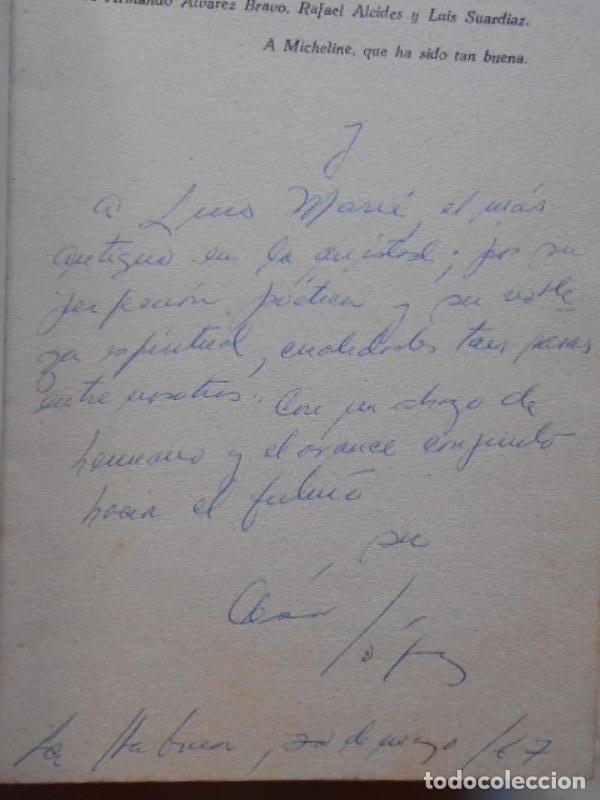 Armando Alvarez Bravo, Rafael Alcides y Luis Suardíaz.
A Micheline, que ha sido tan buena.
y
a Luis Marré, el más
antiguo en la amistad; por su
perfección poética y su noble
za espiritual, cualidades tan raras
entre nosotros. Con un abrazo de
hermano y el avance conjunto
hacia el futuro
, su
César López
La Habana, de mayo /67
todocoleccion